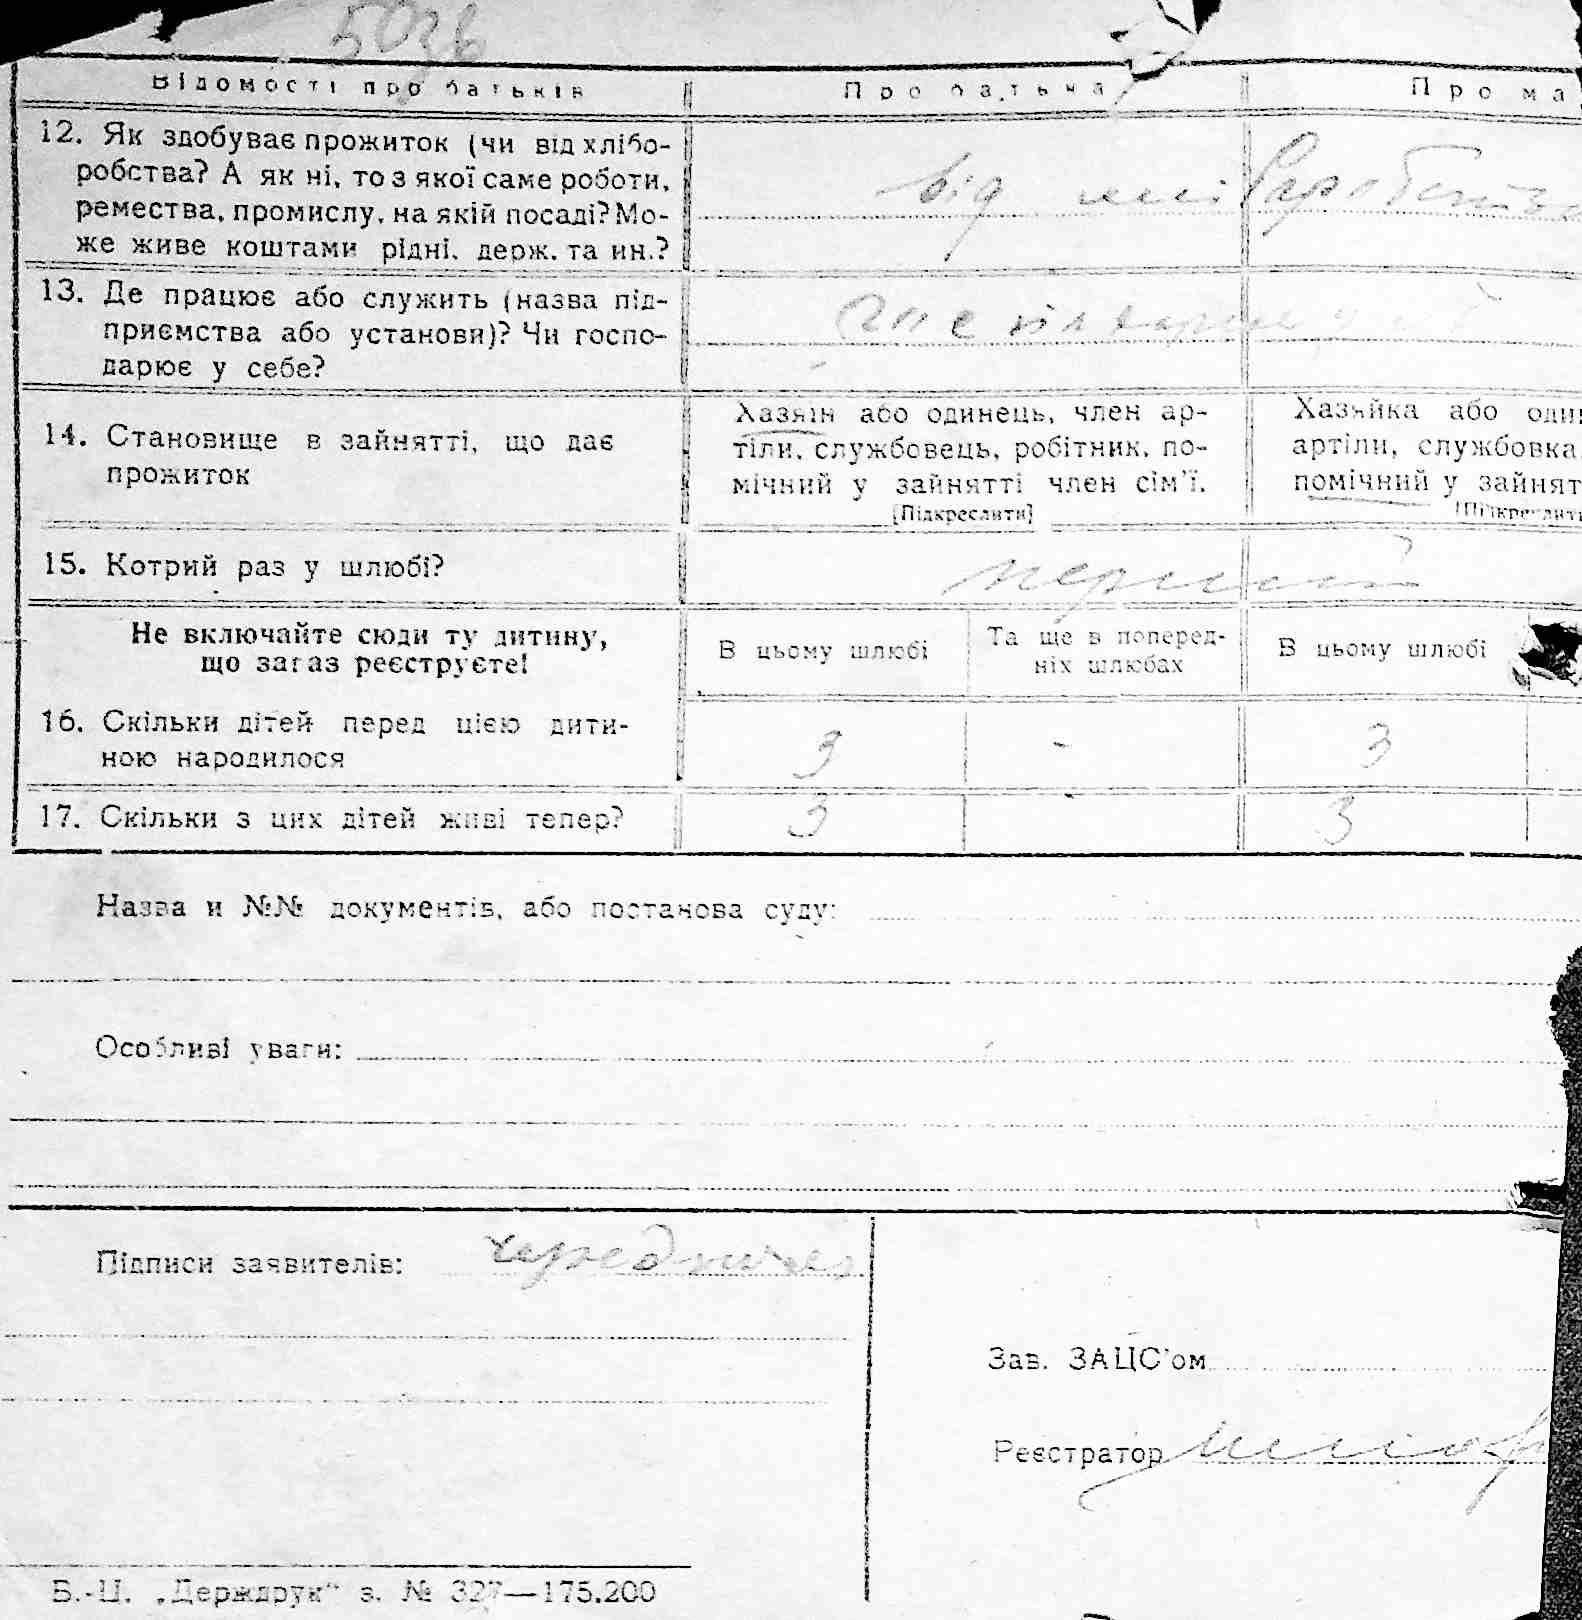 Відомості про батьків Про батька Про ма
12. Як здобуває прожиток (чи від хлібо-
робства? А як ні, то з якої саме роботи,
ремества, промислу, на якій посаді? Мо-
же живе коштами рідні, держ. та ин.?
від хліборобства
13. Де працює або служить (назва під-
приємства або установи)? Чи госпо-
дарює у себе?
14. Становище в зайнятті, що дає
прожиток
Хазяїн або одинець, член ар-
тіли, службовець, робітник, по-
мічний у зайнятті член сім'ї.
[Підкреслити]
Хазяйка або оди
артіли, службовка,
помічний у зайнят
[Підкреслити
15. Котрий раз у шлюбі?
перший
Не включайте сюди ту дитину,
що зараз реєструєте!
В цьому шлюбі
Та ще в поперед-
ніх шлюбах
В цьому шлюбі
16. Скільки дітей перед цією дити-
ною народилося
3 - 3
17. Скільки з цих дітей живі тепер?
3 3
Назва и №№ документів, або постанова суду:
Особливі уваги:
Підписи заявителів:
Зав. ЗАЦС'ом
Реєстратор
Б.-Ц. „Держдрук" з. № 327—175.200